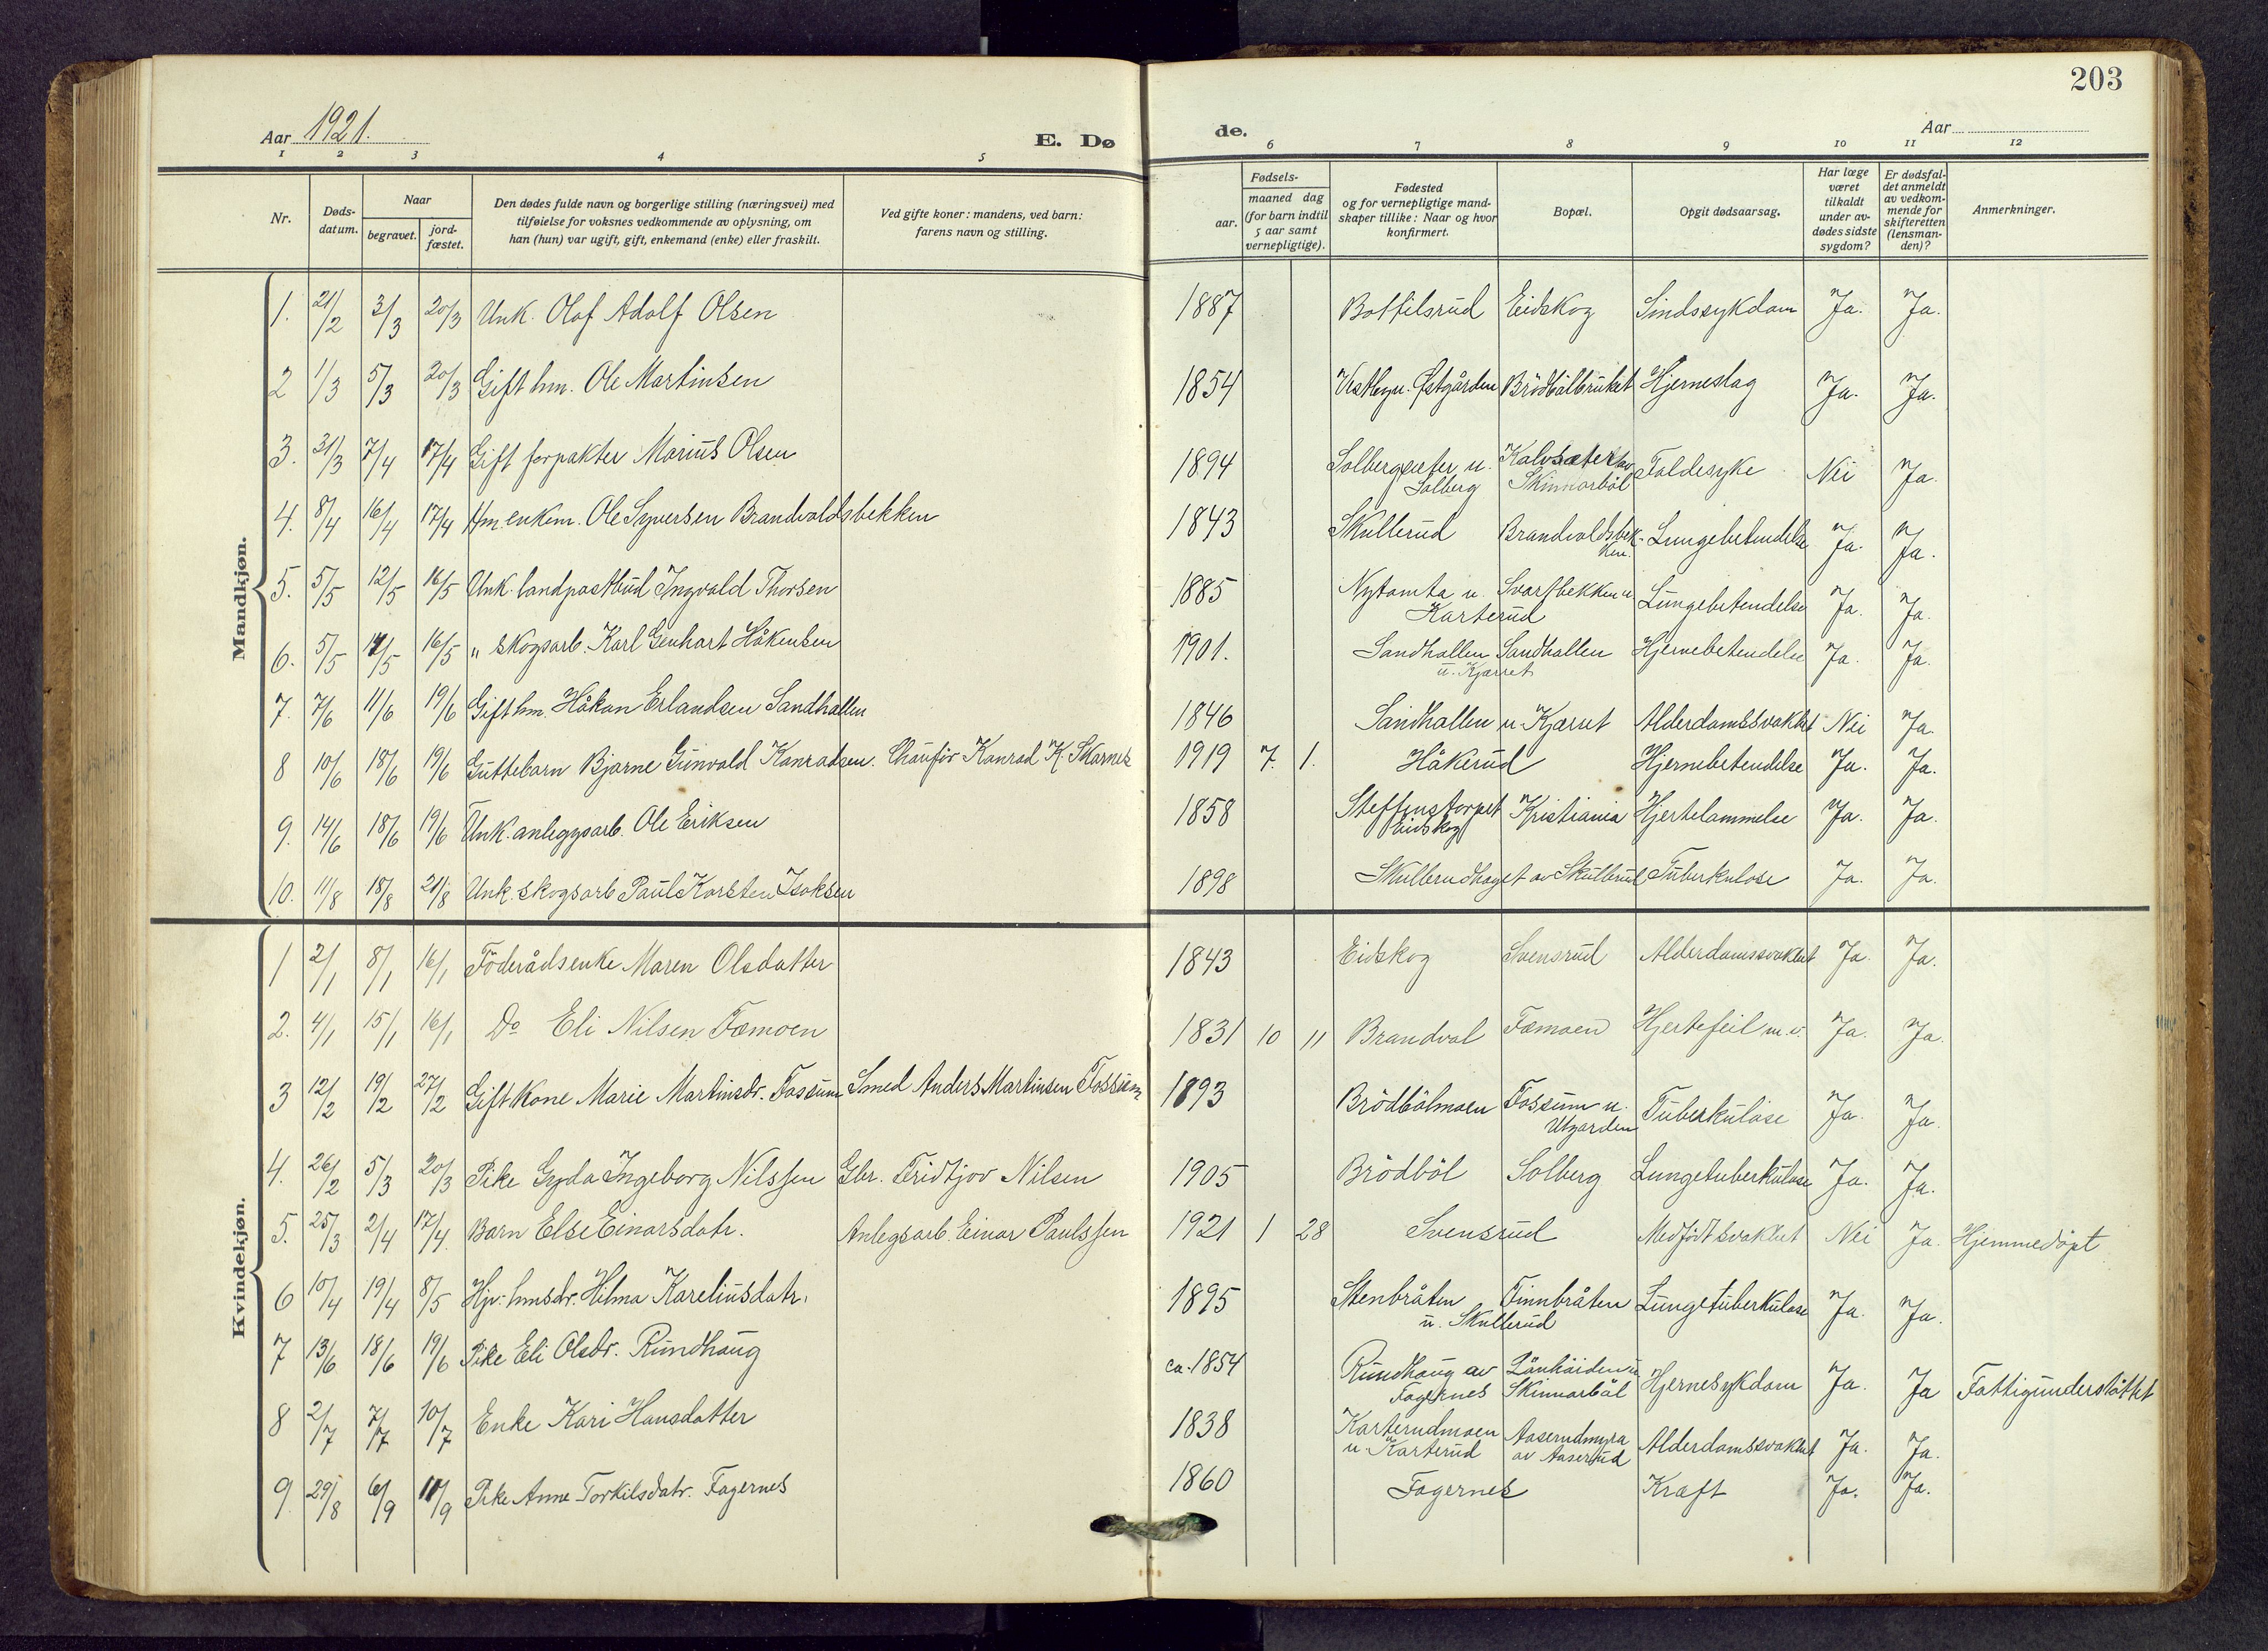 203
Aar 1921.
E. Dø
de.
Aar
1 2 3 4 5 6 7 8 9 10 11 12
Nr.
Døds-
datum.
Naar
begravet.
jord-
fæstet.
Den dødes fulde navn og borgerlige stilling (næringsvei) med
tilføielse for voksnes vedkommende av oplysning, om
han (hun) var ugift, gift, enkemand (enke) eller fraskilt.
Ved gifte koner: mandens, ved barn:
farens navn og stilling.
Fødsels-
aar.
maaned dag
(for barn indtil
5 aar samt
vernepligtige).
Fødested
og for vernepligtige mand-
skaper tillike: Naar og hvor
konfirmert.
Bopæl.
Opgit dødsaarsag.
Har læge
været
tilkaldt
under av-
dødes sidste
sygdom?
Er dødsfal-
det anmeldt
av vedkom-
mende for
skifteretten
(lensman-
den)?
Anmerkninger.
Mandkjøn.
1. 21/2 3/3 20/3 Unk. Olaf Adolf Olsen 1887 Bottilsrud Eidskog Sindssykdom Ja. Ja.
2 1/3 5/3 20/3 Gift hm. Ole Martinsen 1854 Vestbyu. Østgården Brödbölbruket Hjerneslag Ja. Ja.
3. 31/3 7/4 17/4 Gift forpakter Marius Olsen 1894 Solbergsæter u. Solberg Kalvsæter av Skinnarböl Faldesyke Nei Ja.
4. 8/4 16/4 17/4 Hm. enkem. Ole Syversen Brandvoldsbekken 1843 Skullerud Brandvoldsbekken. Lungebetendelse Ja. Ja.
5. 5/5 12/5 16/5 Unk. landpostbud Ingvald Thorsen 1885 Nytomta u. Karterud Svartbekken u Lungebetendelse Ja. Ja.
6. 5/5 14/5 16/5 " skogsarb. Karl Genhart Håkensen 1901. Sandhallen Sandhallen u. Kjærret Hjernebetendelse Ja. Ja.
7. 7/6 11/6 19/6 Gift hm. Håkan Erlandsen Sandhallen 1846 Sandhallen u. Kjærret Alderdomssvakhet Nei Ja.
8 10/6 18/6 19/6 Guttebarn Bjarne Gunvald Konradsen. Chaufør Konrad K. Skarnes 1919 7. 1. Håkerud Hjernebetendelse Ja. Ja.
9. 14/6 18/6 19/6 Unk. anlegsarb. Ole Eriksen 1858 Steffenstorpet Eidskog Kristiania Hjertelammelse Ja. Ja.
10. 11/8 18/8 21/8 Unk. skogsarb Paul Karsten Isaksen 1898 Skullerudhaget av Skullerud Tuberkulose Ja. Ja.
Kvindekjøn.
1 2/1 8/1 16/1 Föderådsenke Maren Olsdatter 1843 Eidskog Svensrud Alderdomssvakhet Ja. Ja.
2. 4/1 15/1 16/1 Do Eli Nilsen Tæmoen 1831 10 11 Brandval Tæmoen Hjertefeil m.v. Ja. Ja.
3 12/2 19/2 27/2 Gift Kone Marie Martinsdr. Fossum Smed Anders Martinsen Fossum 1893 Brödbölmoen Fossum u. Utgarden Tuberkulose Ja. Ja.
4. 26/2 5/3 20/3 Pike Gyda Ingeborg Nilssen Gbr. Fridtjov Nilsen 1905 Brödböl Solberg Lungetuberkulose Ja. Ja.
5. 25/3 2/4 17/4. Barn Else Einarsdatr. Anlegsarb. Einar Paulssen 1921 1 28 Svensrud Medfödt svakhet Nei Ja. Hjemmedöpt
6 10/4 19/4 8/5 Hjv. hmsdr. Hilma Kareliusdatr. 1895 Stenbråten Finnbråten u. Skullerud Lungetuberkulose Ja. Ja.
7 13/6 18/6 19/6 Pike Eli Olsdr. Rundhaug ca. 1854 Rundhaug av Fagernes Lönhöiden u Skinnarböl Hjernesykdom Ja. Ja Fattigunderstöttet
8 2/7 7/7 10/7 Enke Kari Hansdatter 1838 Karterudmoen u. Karterud Aaserudmyra av Aaserud Alderdomssvakhet Ja. Ja.
9. 29/8 6/9 11/9 Pike Anne Torkilsdatr. Fagernes 1860 Fagernes Kræft Ja. Ja.